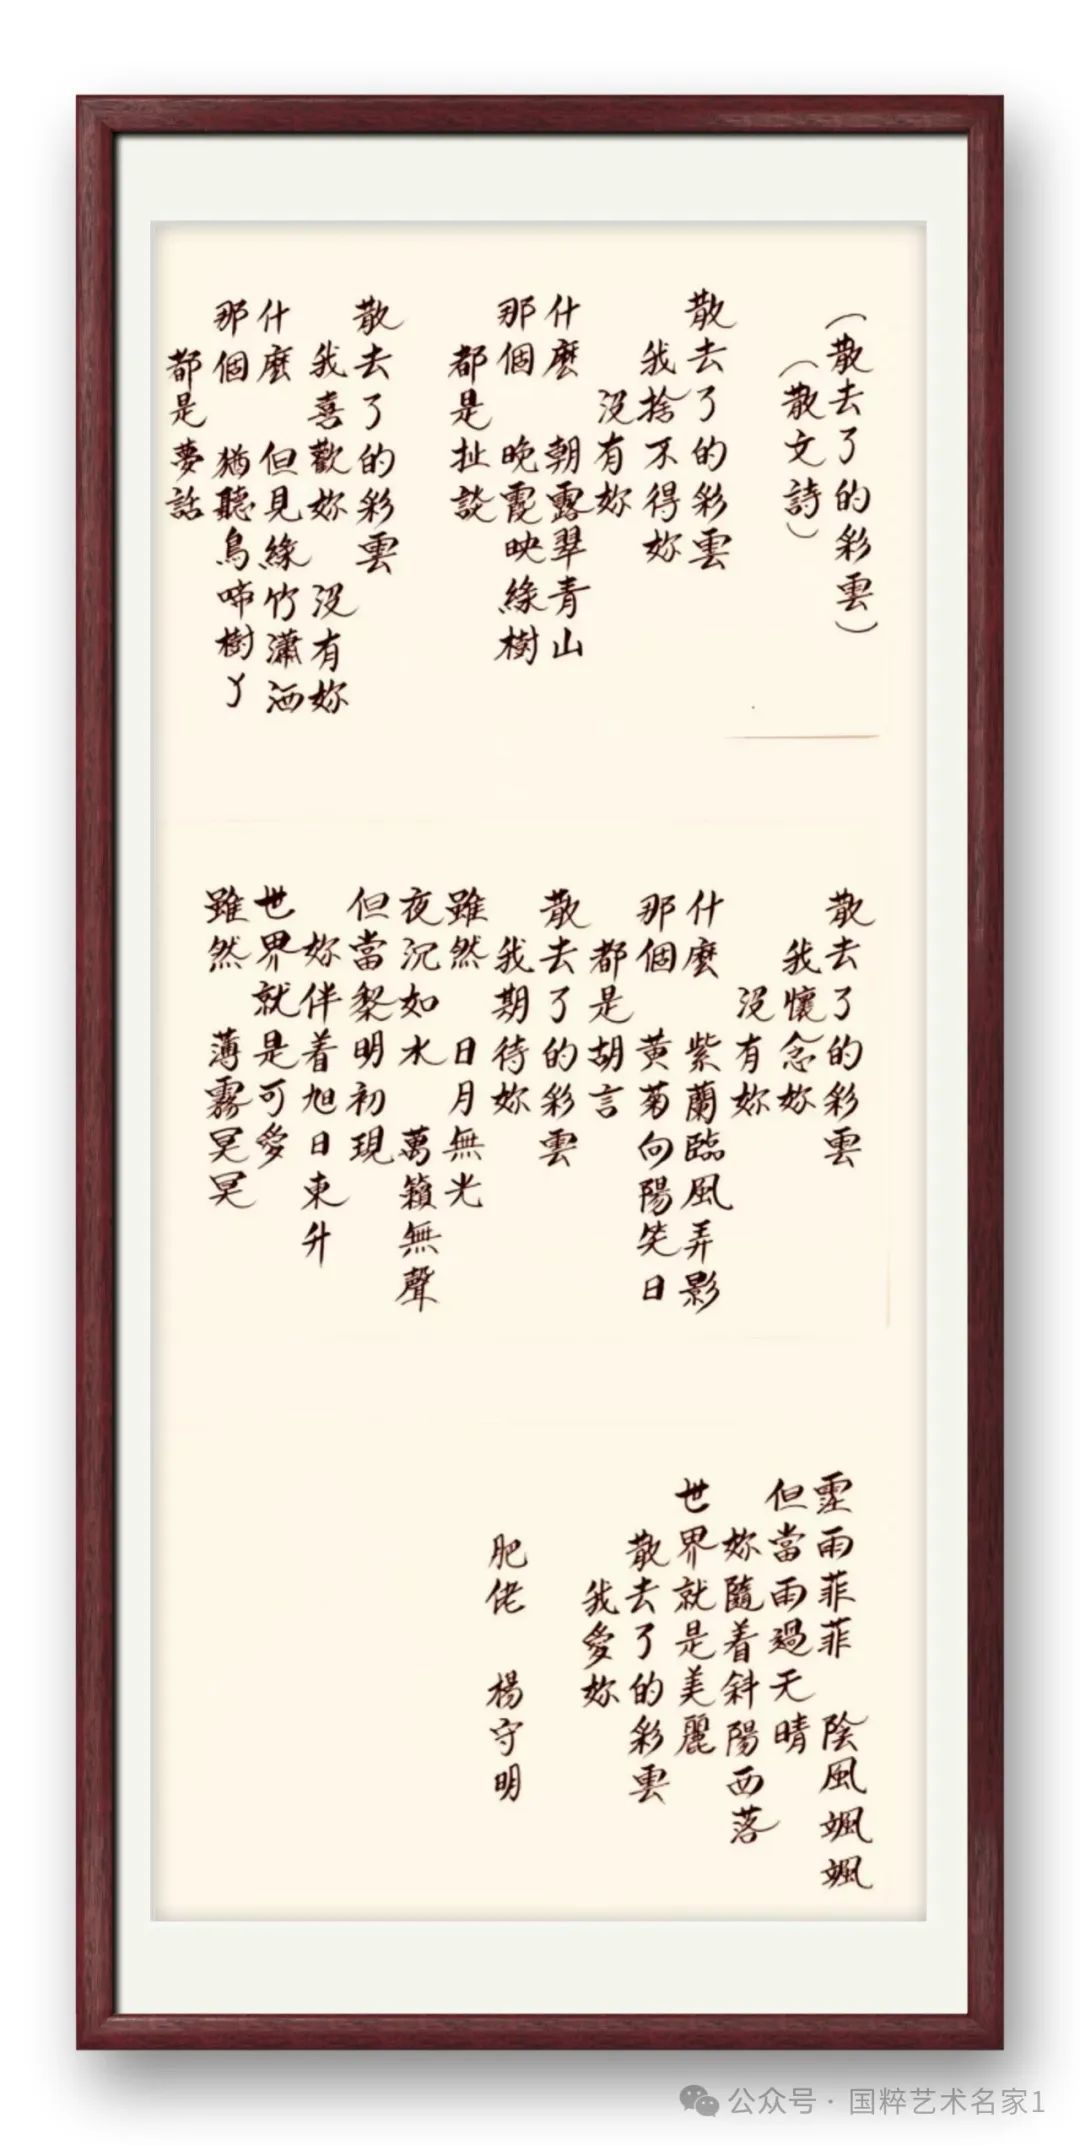 （散去了的彩雲）
（散文詩）
散去了的彩雲
我捨不得妳
没有妳
什麼 朝露翠青山
那個 晚霞映緑樹
都是扯談
散去了的彩雲
我喜歡妳 没有妳
什麼 但見緑竹瀟洒
那個 猶聽鳥啼樹丫
都是夢話
散去了的彩雲
我懷念妳
没有妳
什麼 紫蘭臨風弄影
那個 黄菊向陽笑日
都是胡言
散去了的彩雲
我期待妳
雖然 日月無光
夜沉如水 萬籟無聲
但當黎明初現
妳伴着旭日東升
世界就是可愛
雖然 薄霧冥冥
霪雨菲菲 陰風颯颯
但當雨過天晴
妳隨着斜陽西落
世界就是美麗
散去了的彩雲
我愛妳
肥佬 楊守明
公众号·国粹艺术名家1